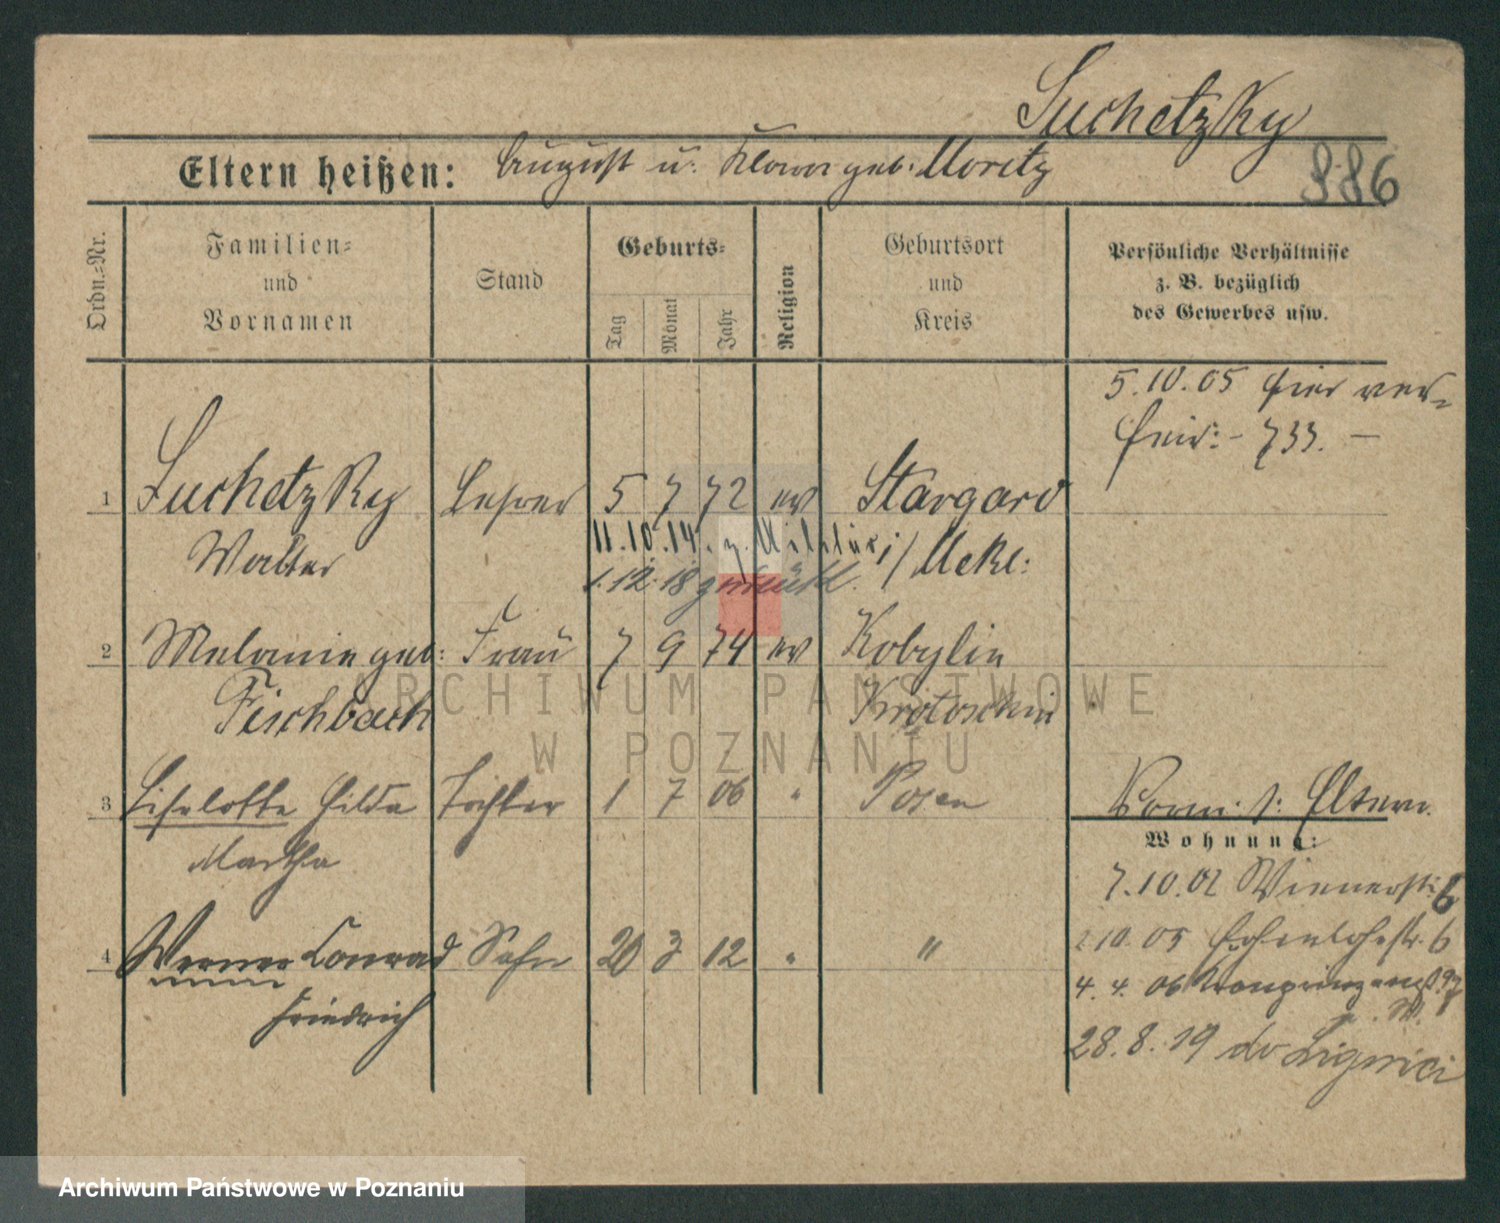 Suchetzky
Eltern heißen: August u. Klara geb. Moritz
886
Ordn.=Nr.
Familien=
und
Vornamen
Stand
Geburts=
Tag
Monat
Jahr
Religion
Geburtsort
und
Kreis
Persönliche Verhältnisse
z. B. bezüglich
des Gewerbes usw.
5.10.05 hier ver-
heir: - 733. -
1 Suchetzky Lehrer 5 7 72 ev Stargard
Walter 11.10.14. z. Militär i/Meckl:
1.12.18 zurück
2 Melanie geb: Frau 7 9 74 ev Kobylin
Fischbach Krotoschin
3 Liselotte Hilda Tochter 1 7 06 " Posen
Martha
4 Werner Conrad Sohn 20 3 12 " "
Friedrich
Eltern.
Wohnung:
7.10.02 Wienerstr. 6
10.05 Hohenlohestr. 6
4.4.06 Kronprinzenstr. 97
28.8.19
ARCHIWUM PAŃSTWOWE
W POZNANIU
Archiwum Państwowe w Poznaniu